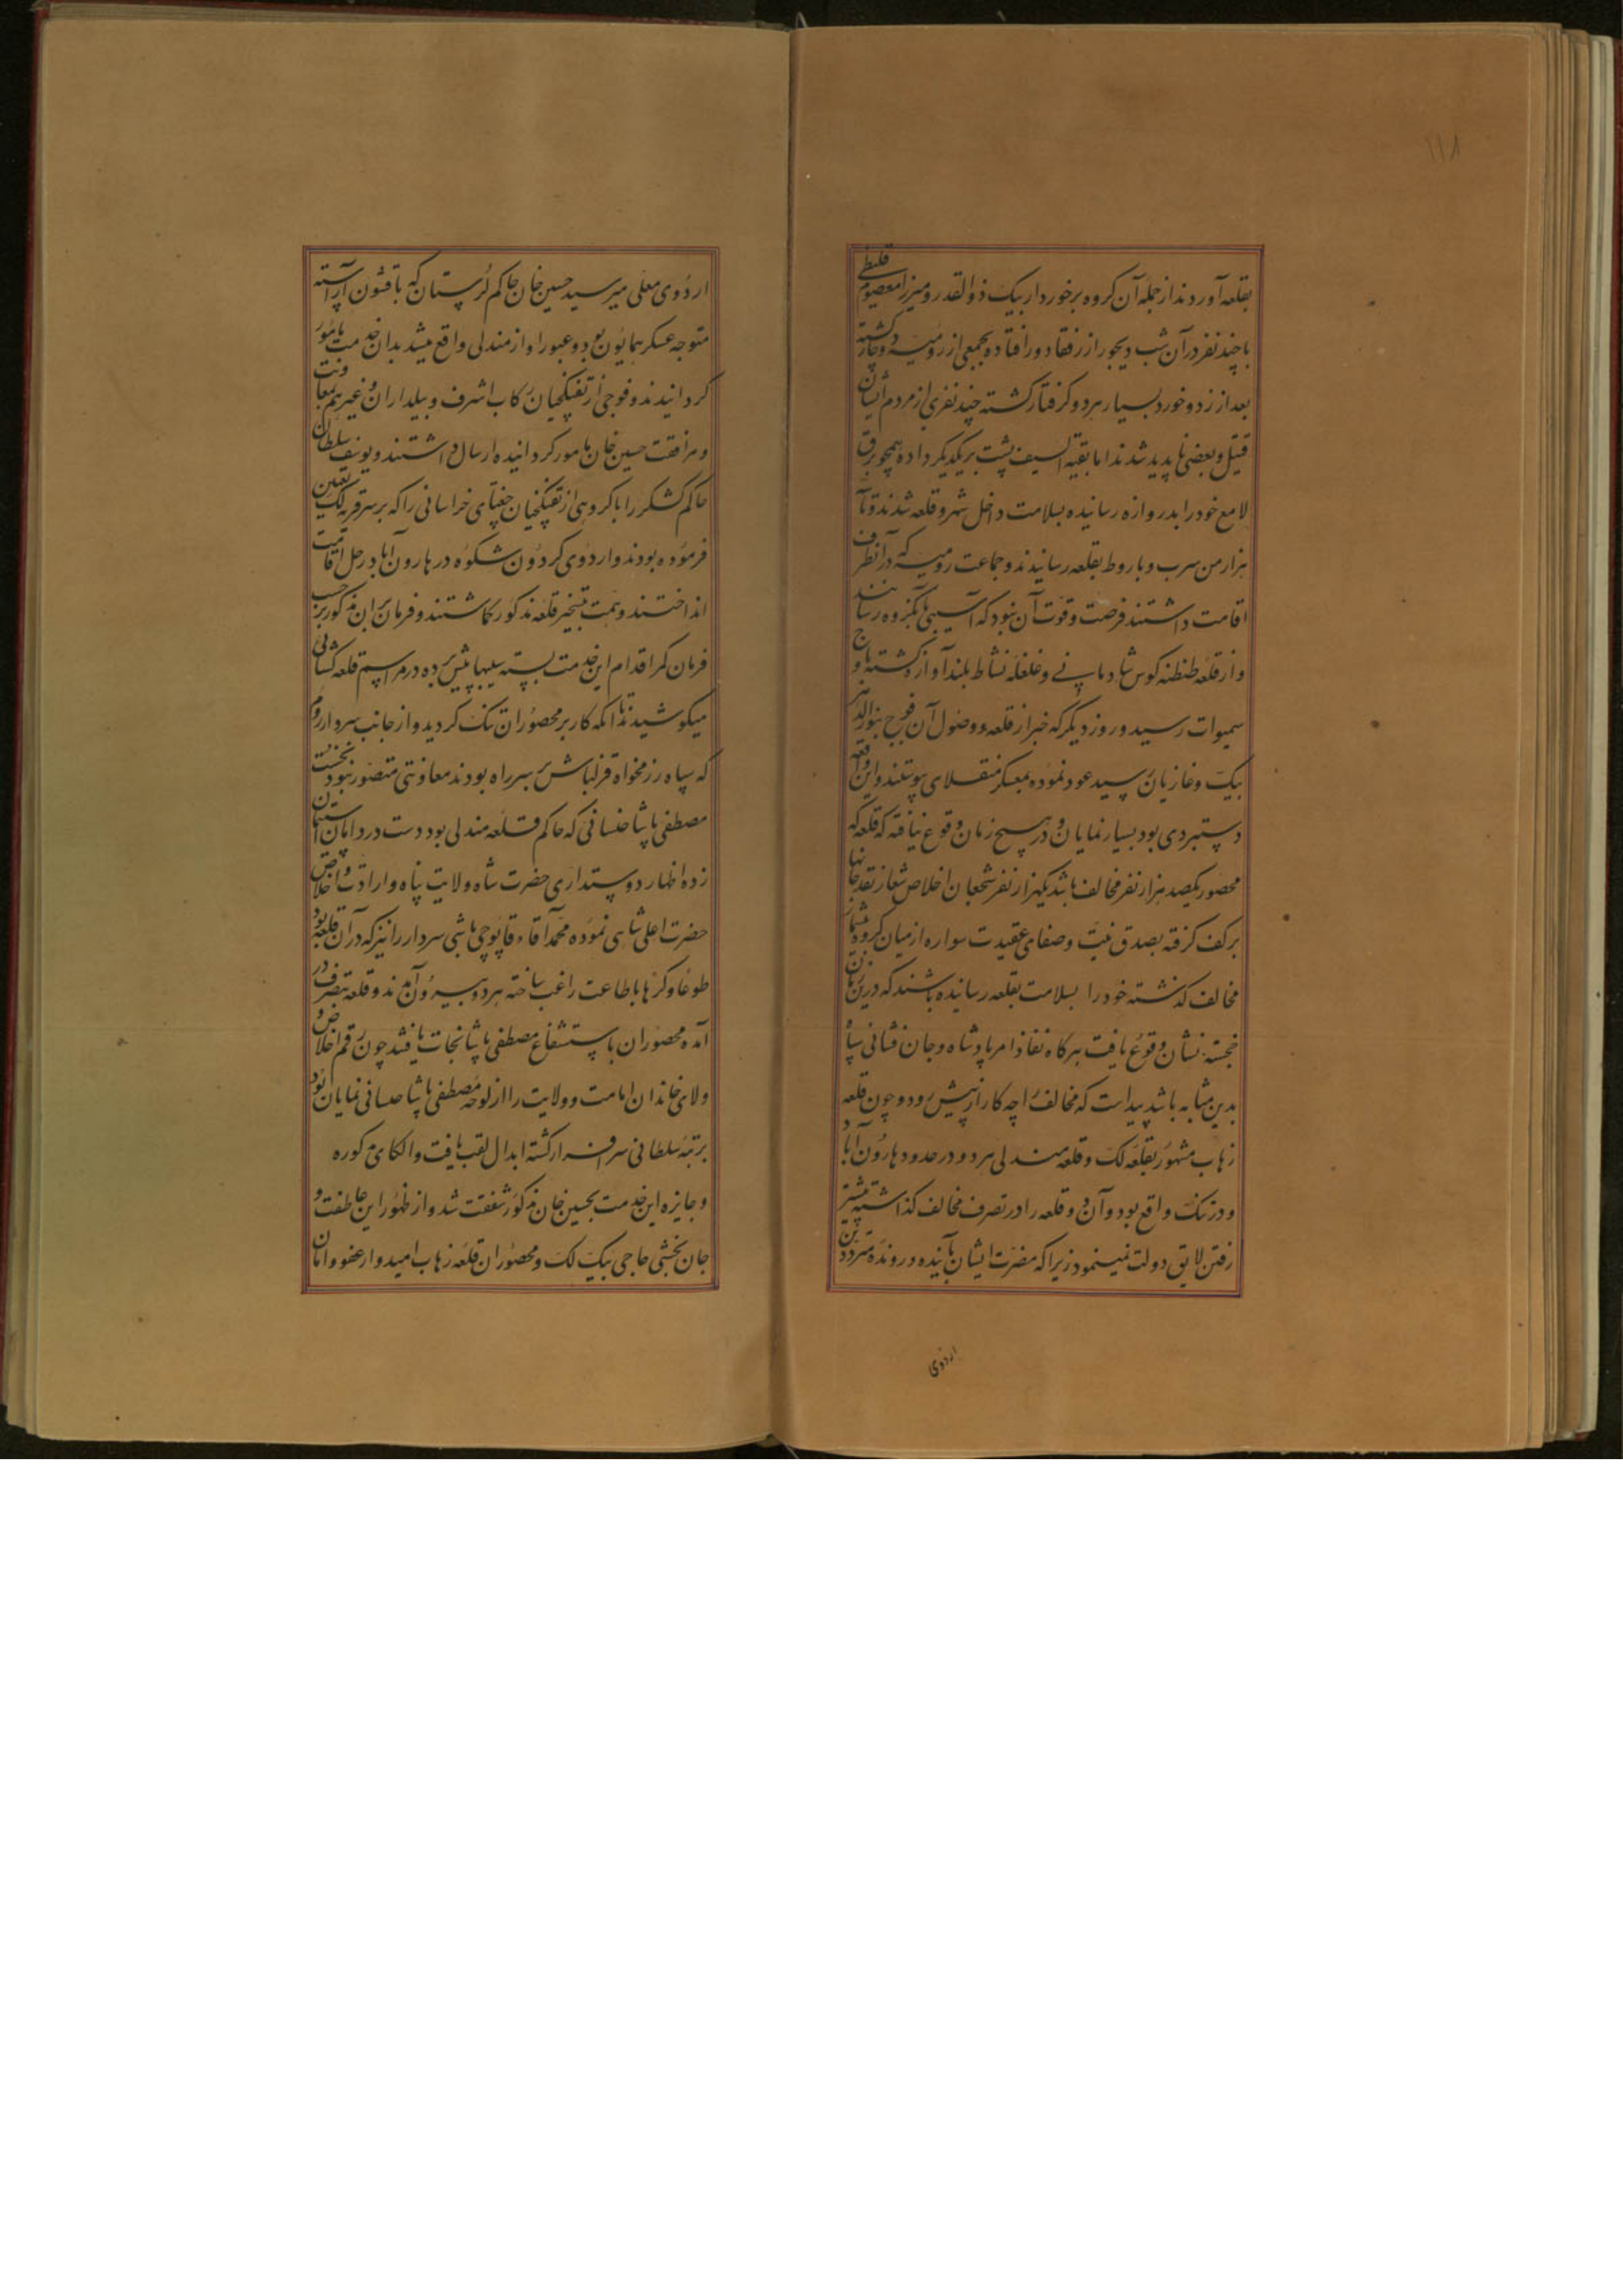 ۱۱۸
بقلعه آوردند از جمله آن کروه برخوردار بیک ذوالقدر و میرزا معصوم
با چند نفر در آن شب دیجور از رفقا دور افتاده بجمعی از رومیه دچار کشته
بعد از زد و خورد بسیار هر دو کرفتار کشته چند نفری از مردم ایشان
قتیل و بعضی ناپدید شدند اما بقیة السیف پشت بر یکدیکر داده همچو برق
لامع خود را بدروازه رسانیده بسلامت داخل شهر و قلعه شدند و تا
هزار من سرب و باروط بقلعه رسانیدند و جماعت رومیه که در آنطرف
اقامت داشتند فرصت و قوت آن نبود که آسیبی بآنکروه رسانند
و از قلعه طنطنه کوس شادمانی و غلغله نشاط بلند آوازه کشته باوج
سموات رسید و روز دیکر که خبر از قلعه و وصول آن فوج بنورالدهر
بیک و غازیان رسید عود نموده بمعسکر منقلای پیوستند و این واقعه
دستبردی بود بسیار نمایان و در هیچ زمان وقوع نیافته که قلعه که
محصور یکصد هزار نفر مخالف باشد یکهزار نفر شجعان اخلاص شعار نقد جانها
بر کف کرفته بصدق نیت و صفای عقیدت سواره از میان کروه بیشمار
مخالف کذشته خود را بسلامت بقلعه رسانیده باشند که درین زمان
خجسته نشان وقوع یافت هرکاه نفاذ امر پادشاه و جان فشانی سپاه
بدین مثابه باشد پیداست که مخالف را چه کار از پیش رود و چون قلعه
زهاب مشهور بقلعه لک و قلعه مندلی هر دو در حدود هارون آباد
و درتنک واقع بود و آن دو قلعه را در تصرف مخالف کذاشته پیشتر
رفتن لایق دولت نمینمود زیرا که مضرت ایشان بآینده و رونده مترددین
اردوی
اردوی معلی میرسید حسین خان حاکم لرستان که با قشون آراسته
متوجه عسکر همایون بود و عبور او از مندلی واقع میشد بدان خدمت مامور
کردانیدند و فوجی از تفنکچیان رکاب اشرف و بیلداران و غیرهم بمعاونت
و مرافقت حسین خان مامور کردانیده ارسال داشتند و یوسف سلطان
حاکم کشکر را با کروهی از تفنکچیان جغتای خراسانی را که بر سر قریه لک تعیین
فرموده بودند و اردوی کردون شکوه در هارون آباد رحل اقامت
انداختند و همت بتسخیر قلعه مذکور کماشتند و فرمان بران مذکور بر حسب
فرمان کمر اقدام این خدمت بسته سیبها پیش برده در مراسم قلعه کشائی
میکوشیدند تا آنکه کار بر محصوران تنک کردید و از جانب سردار روم
که سپاه رزمخواه قزلباش بر سر راه بودند معاونتی متصور نبود نخست
مصطفی پاشا که حاکم قلعه مندلی بود دست در دامان استیمان
زده اظهار دوستداری حضرت شاه ولایت پناه و ارادت و اخلاص
حضرت اعلی شاهی نموده محمد آقاء قاپوچی باشی سردار را نیز که در آن قلعه بود
طوعا و کرها باطاعت راغب ساخته هر دو بیرون آمدند و قلعه بتصرف در
آمده محصوران باستشفاع مصطفی پاشا نجات یافتند چون رقم اخلاص و
ولای خاندان امامت و ولایت را از لوحه مصطفی پاشا نمایان بود
برتبه سلطانی سرافراز کشته ابدال لقب یافت و الکای مذکوره
و جایزه این خدمت بحسین خان مذکور شفقت شد و از ظهور این عاطفت و
جان بخشی حاجی بیک لک و محصوران قلعه زهاب امیدوار عفو و امان